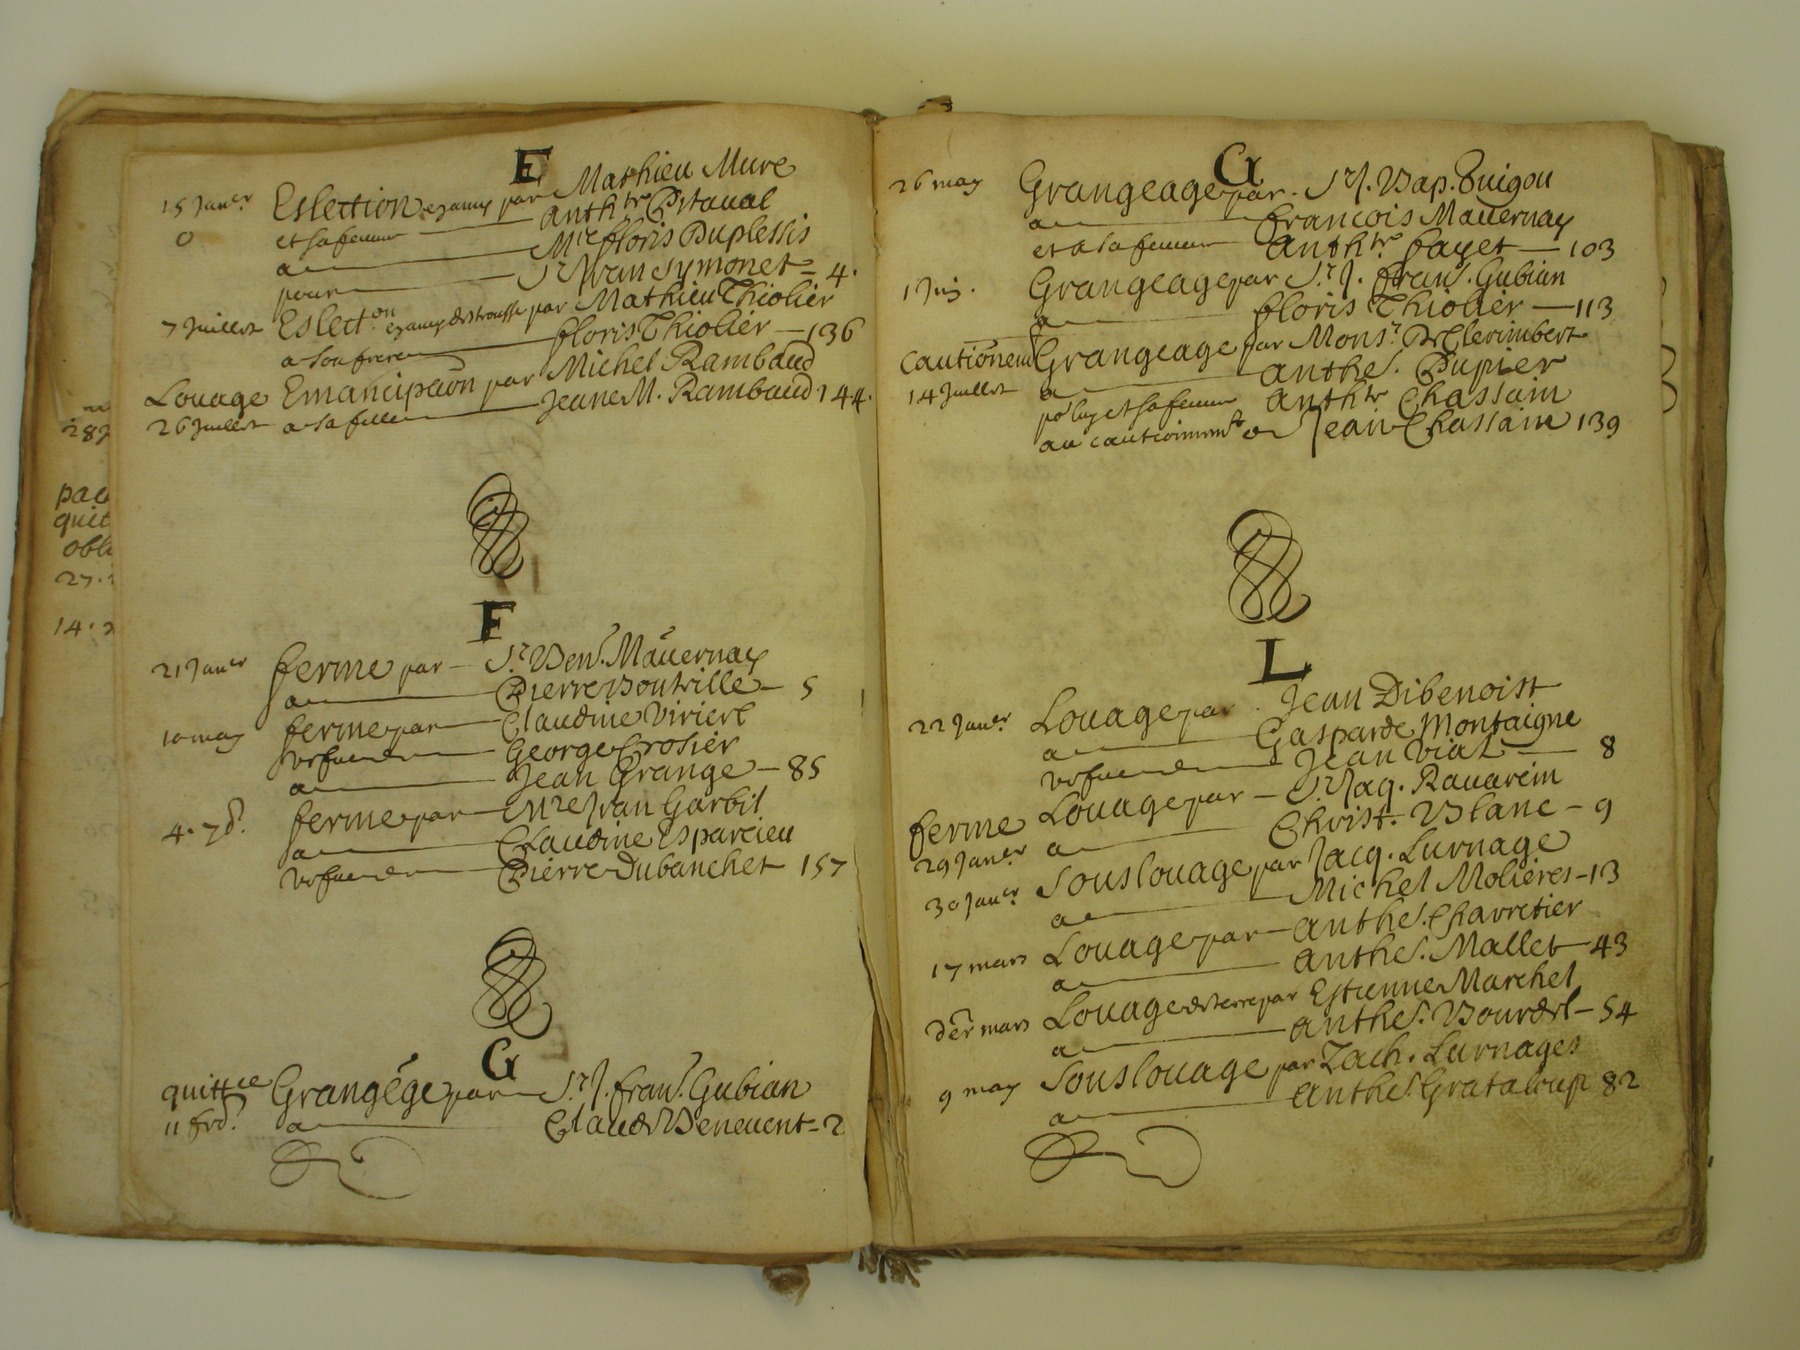 E
15 Janer Eslection en amy par Mathieu Mure
0 et sa femme Anthtte Pitaual
a Mre floris Duplessis
pour Sr Jean Symonet = 4.
7 Juillet Eslecton en amy par Mathieu Thiolier
a son frere floris Thiolier — 136
Louage Emancipaõn par Michel Rambaud
26 Juillet a sa fille Jeane M. Rambaud 144.
pac
quit
obli
14.
F
21 Janer ferme par — Sr Ben. Mauernay
a Pierre Boutville — 5
10 may ferme par Claudine Viriert
George Crosier
a Jean Grange — 85
4. 7b. ferme par Mre Jean Garbil
a Claudine Esparcieu
Pierre Dubanchet 157
G
quittce Grangége par Sr J. frans. Gubian
11 a Claude Beneuent = 2
G
26 may Grangeage par. Sr J. Bap. Guigou
a francois Mauernay
et a sa femme Anthtte fayet — 103
1 Juin. Grangeage par Sr J. frans. Gubian
a floris Thiolier — 113
Cautionemt Grangeage par Monsr. De Clerimbert
14 Juillet a Anthe. Pupier
po luy et sa femme Anthtte Chassain
au cautionnemt de Jean Chassain 139
L
22 Janer Louage par. Jean Dibenoist
a Gasparde Montaigne
Jean Vial — 8
ferme Louage par — Sr Jaq. Rauarein
29 Janer a Christ. Blanc — 9
30 Janer Souslouage par Jacq. Lurnage
a Michel Molieres — 13
17 mars Louage par — Anthe. Charretier
a Anthe. Mallet — 43
der mars Louage de terre par Estienne Marchel
a Anthe. Bourdel — 54
9 may Souslouage par Zach. Lurnages
a Anthe. Grataloup 82